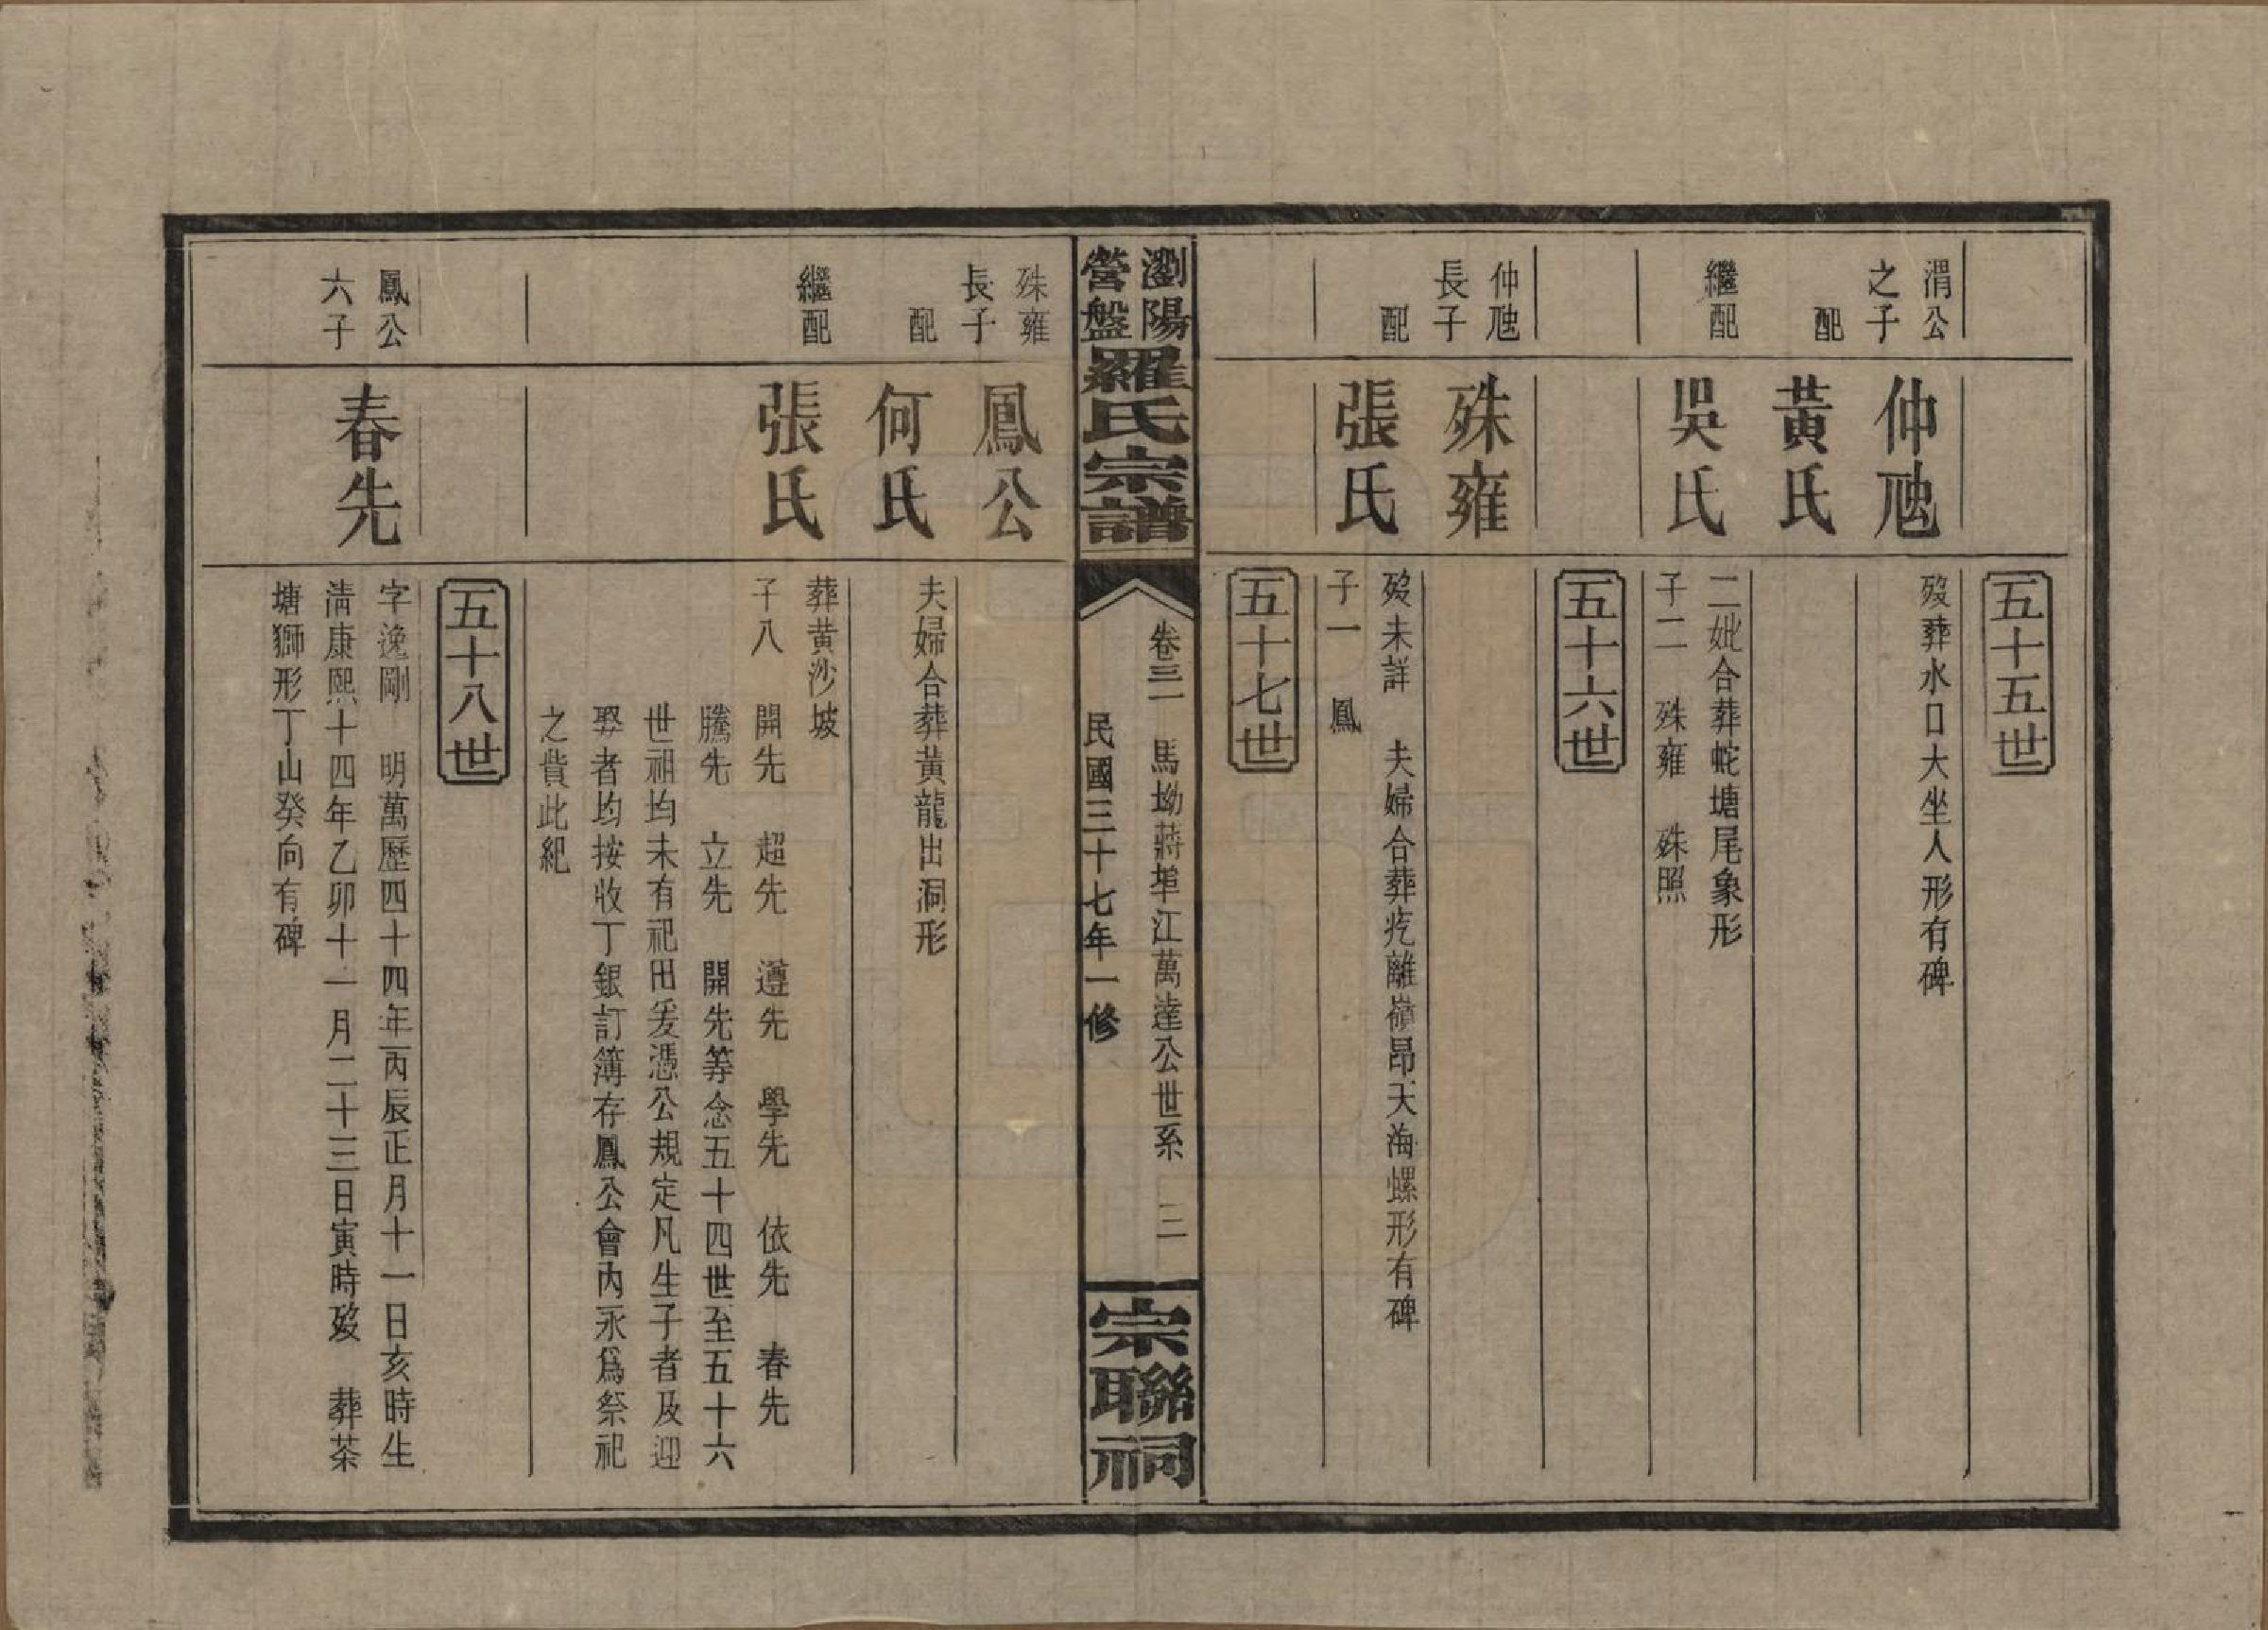 五十五世
渭公之子
仲虺
歿葬水口大坐人形有碑
配
黃氏
繼配
吳氏
二妣合葬蛇塘尾象形
子二　殊雍　殊照
五十六世
仲虺長子
殊雍
歿未詳　夫婦合葬疙離嶺昂天海螺形有碑
配
張氏
子一　鳳
五十七世
瀏陽
營盤
羅氏宗譜
卷三　馬坳蔣埠江萬達公世系　三
民國三十七年一修
宗聯祠
殊雍長子
鳳公
配
何氏
夫婦合葬黃龍出洞形
繼配
張氏
葬黄沙坡
子八　開先　超先　遵先　學先　依先　春先
騰先　立先　開先等念五十四世至五十六
世祖均未有祀田爰憑公規定凡生子者及迎
娶者均按收丁銀訂簿存鳳公會內永爲祭祀
之費此紀
五十八世
鳳公六子
春先
字逸剛　明萬歷四十四年丙辰正月十一日亥時生
淸康熙十四年乙卯十一月二十三日寅時歿　葬茶
塘獅形丁山癸向有碑